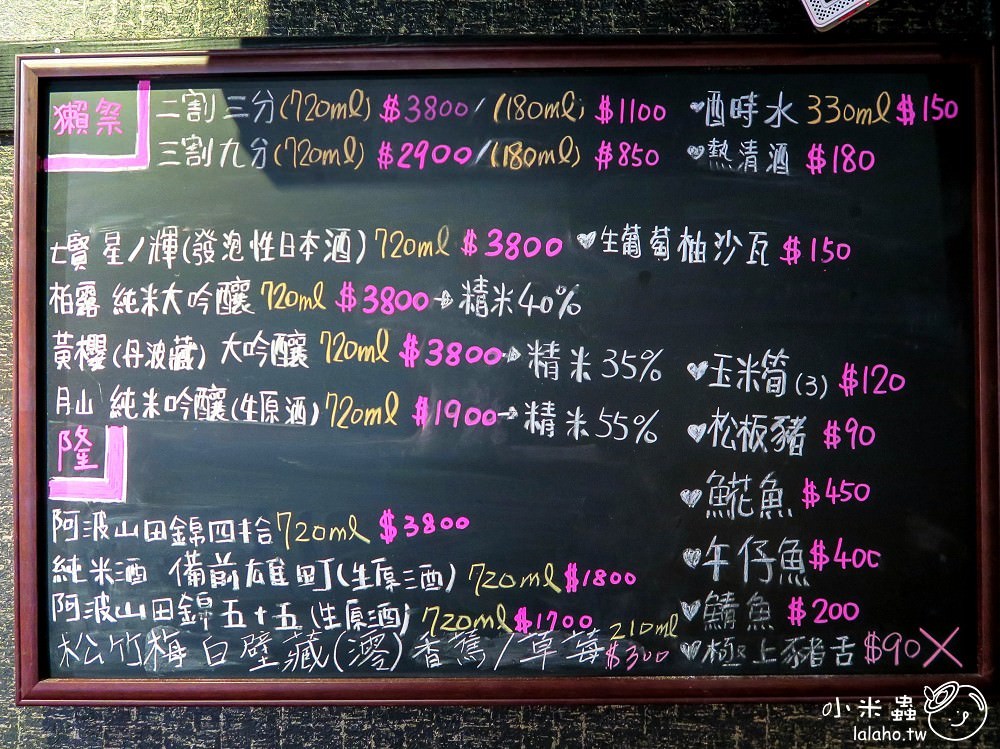 獺祭 二割三分(720ml) $3800/(180ml) $1100
三割九分(720ml) $2900/(180ml) $850
七賢 星ノ輝(發泡性日本酒) 720ml $3800
柏露 純米大吟釀 720ml $3800→精米40%
黃櫻(丹波藏) 大吟釀 720ml $3800→精米35%
月山 純米吟釀(生原酒) 720ml $1900→精米55%
隆
阿波山田錦四拾 720ml $3800
純米酒 備前雄町(生原酒) 720ml $1800
阿波山田錦五十五(生原酒) 720ml $1700
松竹梅白壁藏(澪)香蕉/草莓 210ml $300
♥酒時水 330ml $150
♥熱清酒 $180
♥生葡萄柚沙瓦 $150
♥玉米筍(3) $120
♥松板豬 $90
♥魚花魚 $450
♥午仔魚 $400
♥鯖魚 $200
♥極上豬舌 $90 X
小米蟲
lalaho.tw